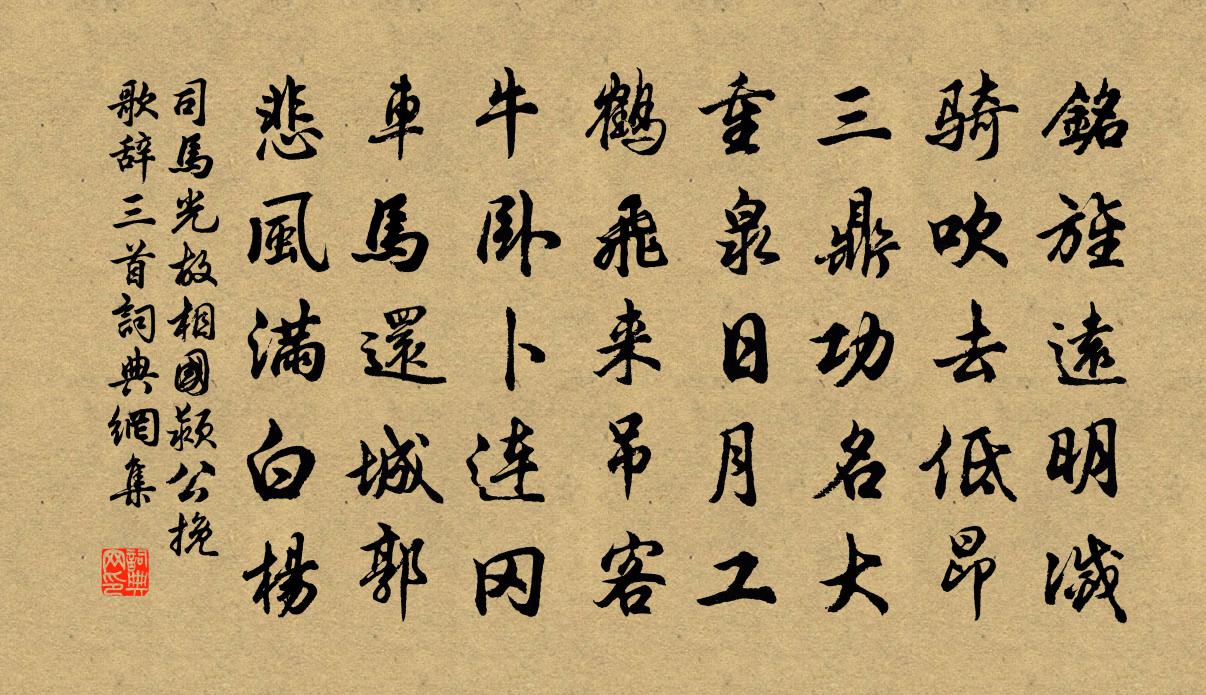 銘旌遠明滅
騎吹去低昂
三鼎功名大
重泉日月工
鶴飛来吊客
牛卧卜连冈
車馬還城郭
悲風満白楊
司馬光故相國颍公挽
歌辞三首詞典網集
詞典网印